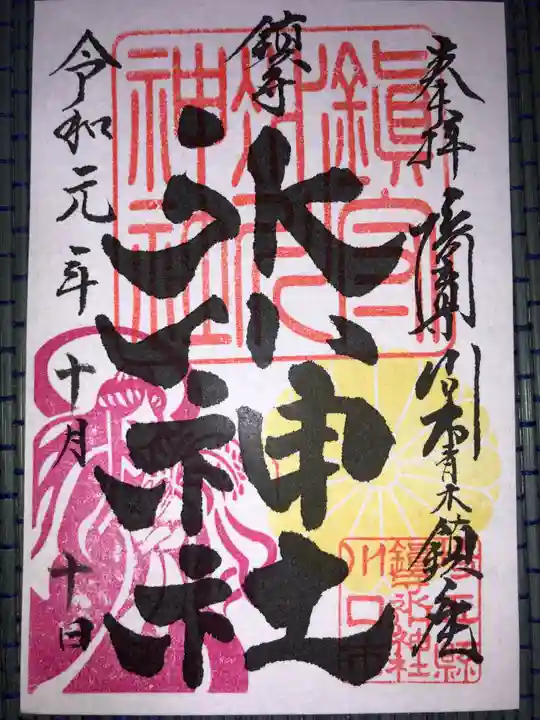 奉拝 川口市青木鎮座
鎮守
氷川神社
令和元年十月十日
鎮守
氷川
神社
埼玉縣
鎮守氷川神社
川口市